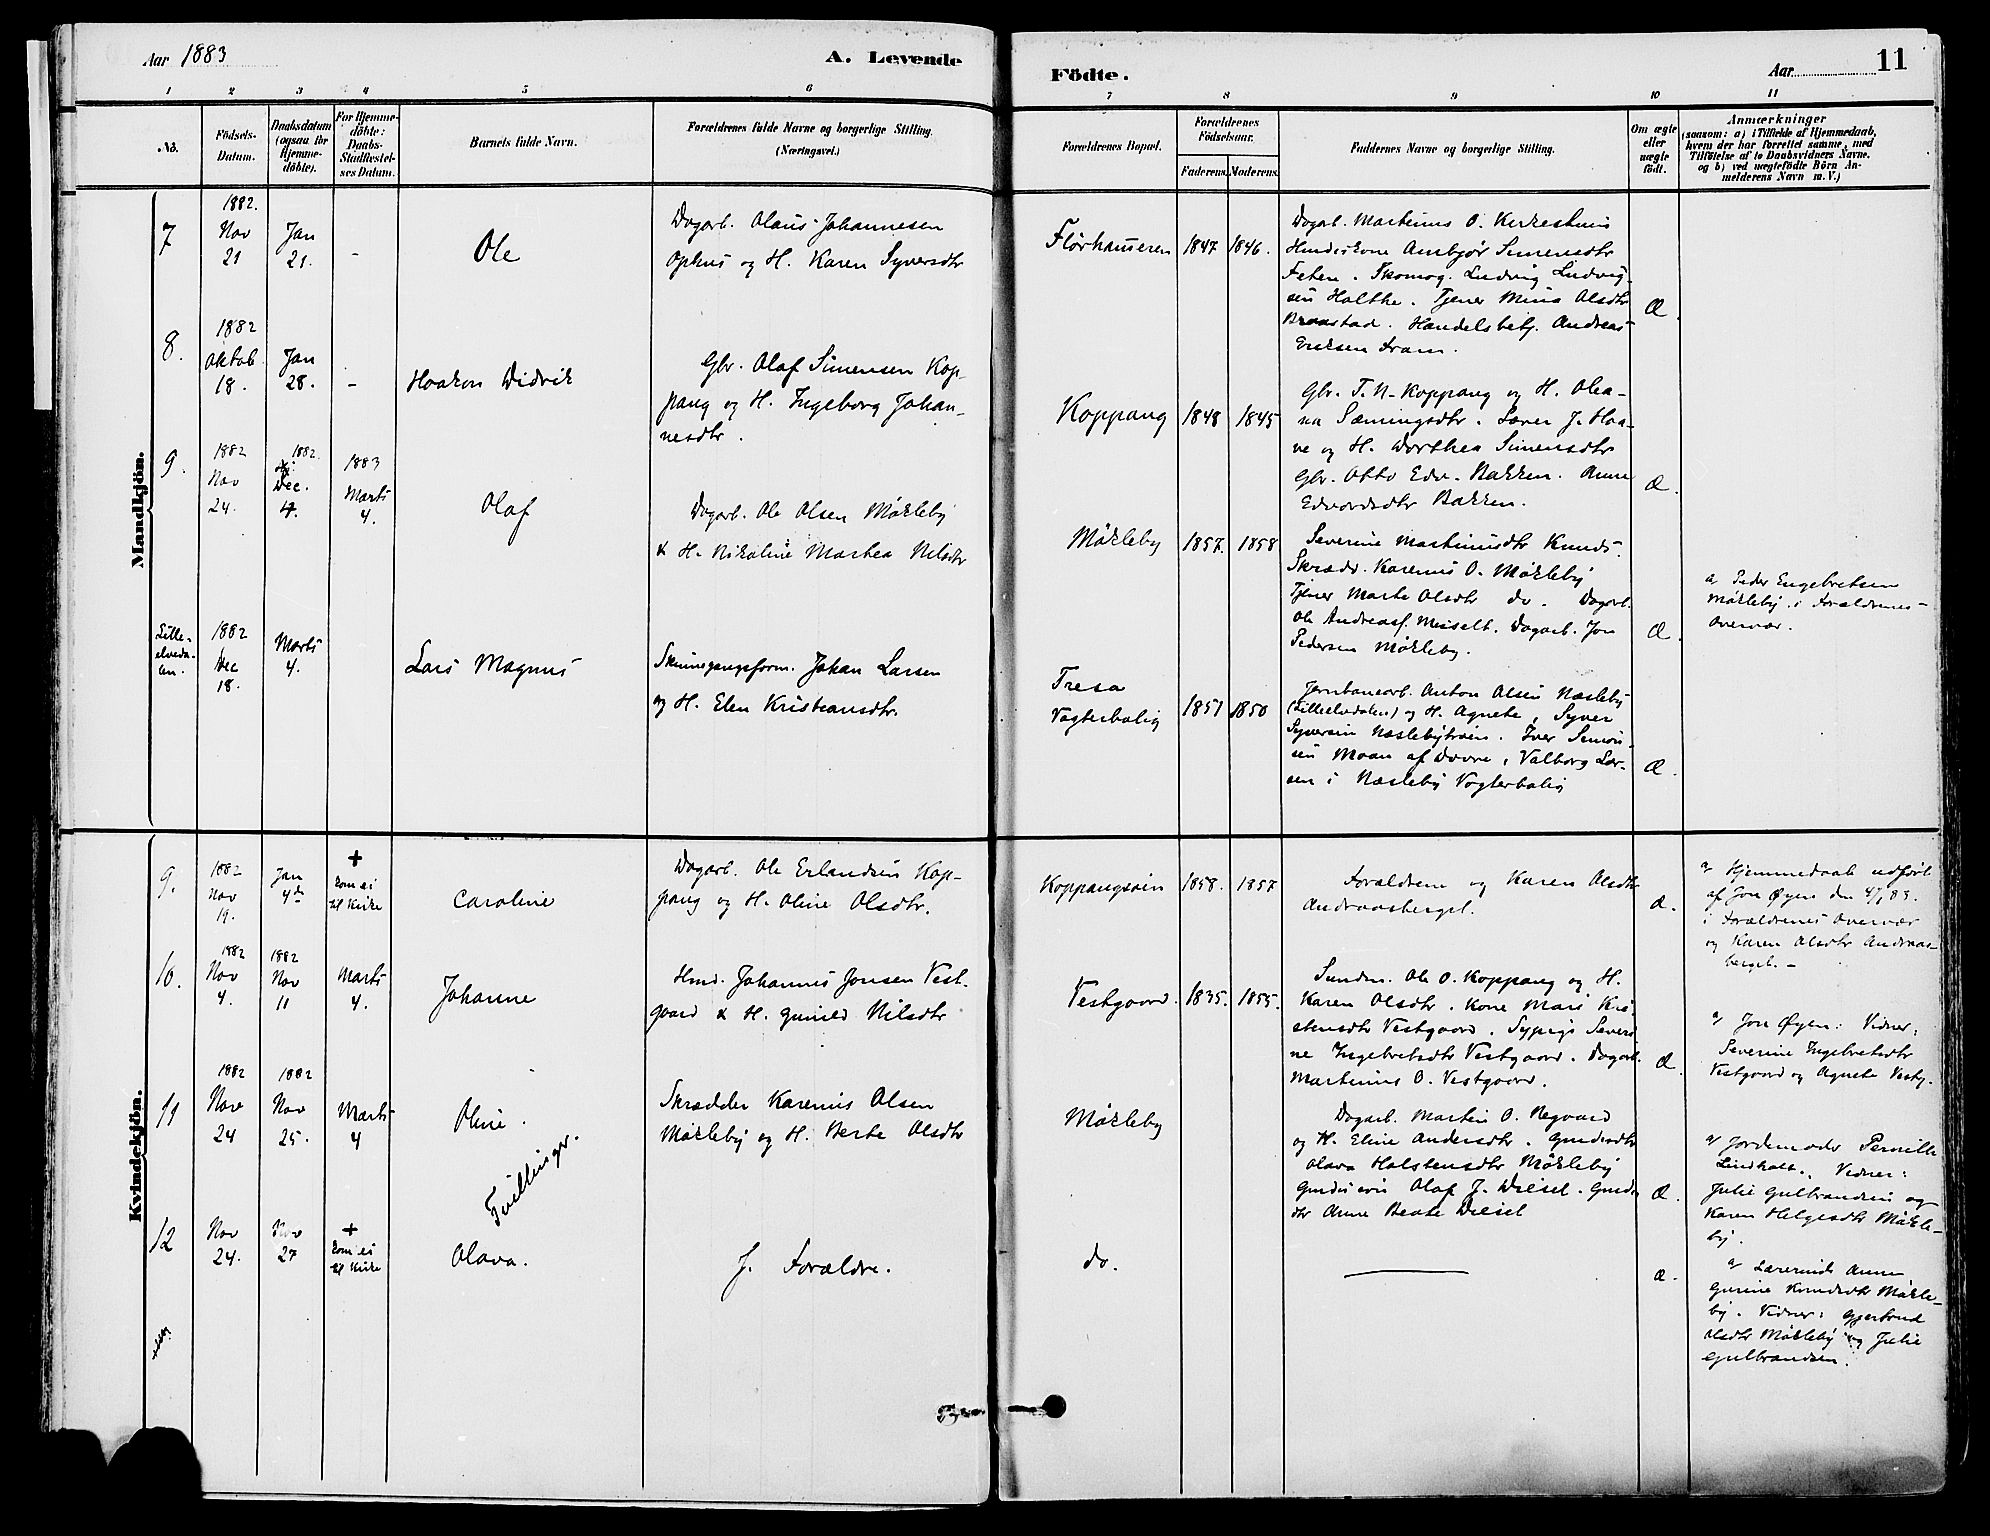 Aar 1883
A. Levende
Födte.
Aar
11
1
2
3
4
5
6
7
8
9
10
11
No.
Födsels-
Datum.
Daabsdatum
(ogsaa for
Hjemme-
döbte).
For Hjemme-
döbte:
Daabs-
Stadfæstel-
ses Datum.
Barnets fulde Navn.
Forældrenes fulde Navne og borgerlige Stilling.
(Næringsvei.)
Forældrenes Bopæl.
Forældrenes
Födselsaar.
Faderens.
Moderens.
Faddernes Navne og borgerlige Stilling.
Om ægte
eller
uægte
födt.
Anmærkninger
(saasom: a) i Tilfælde af Hjemmedaab,
hvem der har forrettet samme, med
Tilföielse af to Daabsvidners Navne.
og b) ved uægtefödte Börn An-
melderens Navn m. V.)
Mandkjön.
7
1882.
Nov
21
Jan
21.
-
Ole
Dagarb. Olaus Johannesen
Ophus og H. Karen Syversdtr
1847
1846.
Dagarb. Martinus O.
Huuskone Ambjør Simensdtr
Feten. Skomag. Ludvig Ludvig-
sen Holthe. Tjener Mina Olsdtr
Handelsbetj. Andreas
Eriksen Fram.
Æ.
8.
1882
Oktob.
18.
Jan
28.
-
Haakon Didrik
Gbr. Olaf Simensen Kop-
pang og H. Ingeborg Johan-
nesdtr.
Koppang
1848
1845
Gbr. T. N. Koppang og H. Olea-
na Sæmingsdtr. Lærer J. Haa-
ve og H. Dorthea Simensdtr
Gbr. Otto Edv. Bakken. Anne
Edvardsdtr Bakken.
Æ.
9.
1882
Nov
24.
1882.
Dec.
4.
1883
Marts
4.
Olaf
Dagarb. Ole Olsen Møkleby
& H. Nikoline Martea Nilsdtr
Møkleby
1857.
1858
Severine Martinusdtr
Skrædd. Karenus O. Møkleby
Tjener Marte Olsdtr do. Dagarb.
Ole Andreasf. Messelt. Dagarb. Jon
Pedersen Møkleby.
Æ.
a) Peder Engebretsen
Møkleby i Forældrenes
Overvær.
Lille-
elveda-
len.
1882
Dec
18.
Marts
4.
Lars Magnus
Skinnegangsform. Johan Larsen
og H. Elen Kristiansdtr.
Tresa
Vogterbolig
1851
1850
Jernbanearb. Anton Olsen Næsleby
(Lilleelvdalen) og H. Agnete, Syver
Syversen
Iver Simon-
sen Moan af Dovre, Valborg Lar-
sen i Næsleby Vogterbolig
Æ.
Kvindekjön.
9.
1882
Nov
19.
Jan
4de
+
Kom ei
til Kirke
Caroline
Dagarb. Ole Erlandsen Kop-
pang og H. Oline Olsdtr.
Koppangsøien
1858.
1857
Forældrene og Karen Olsdtr
Andreasberget.
Æ.
a) Hjemmedaab udført
af Jon Øyen den 4/1 83.
i Forældrenes Overvær
og Karen Olsdtr Andreas-
berget. -
10.
1882
Nov
4.
1882
Nov
11
Marts
4.
Johanne
Hmd. Johannes Jonsen Vest-
gaard & H. Gunild Nilsdtr
Vestgaard.
1835.
1855.
Ole O. Koppang og H.
Karen Olsdtr. Kone Mari Kri-
stensdtr Vestgaard. Sypige Severi-
ne Ingebretsdtr Vestgaard. Dagarb.
Martinus O. Vestgaard.
Æ.
a) Jon Øyen: Vidner:
Severine Ingebretsdtr
Vestgaard og Agnete Vestg.
11
1882
Nov
24
1882
Nov
25.
Marts
4
Oline.
Tvillinger.
Skrædder Karenus Olsen
Møkleby og H. Berte Olsdtr
Møkleby
Dagarb. Martin O. Negaard
og H. Eline Andersdtr. Gaardsdtr
Olava Halstensdtr Møkleby
Olaf J. Diesel.
Anne Beate Diesel
Æ.
a) Jordemoder Pernille
Lindholt. Vidner:
Julie Gulbrandsen og
Karen Helgesdtr Møkle-
by.
12
Nov
24.
Nov
27
+
Kom ei
til Kirke
Olava.
f. Forældre.
do.
Æ.
a) Anne
Gurine Knudsdtr Møkle-
by. Vidner: Gjertrud
Olsdtr Møkleby og Julie
Gulbrandsen.